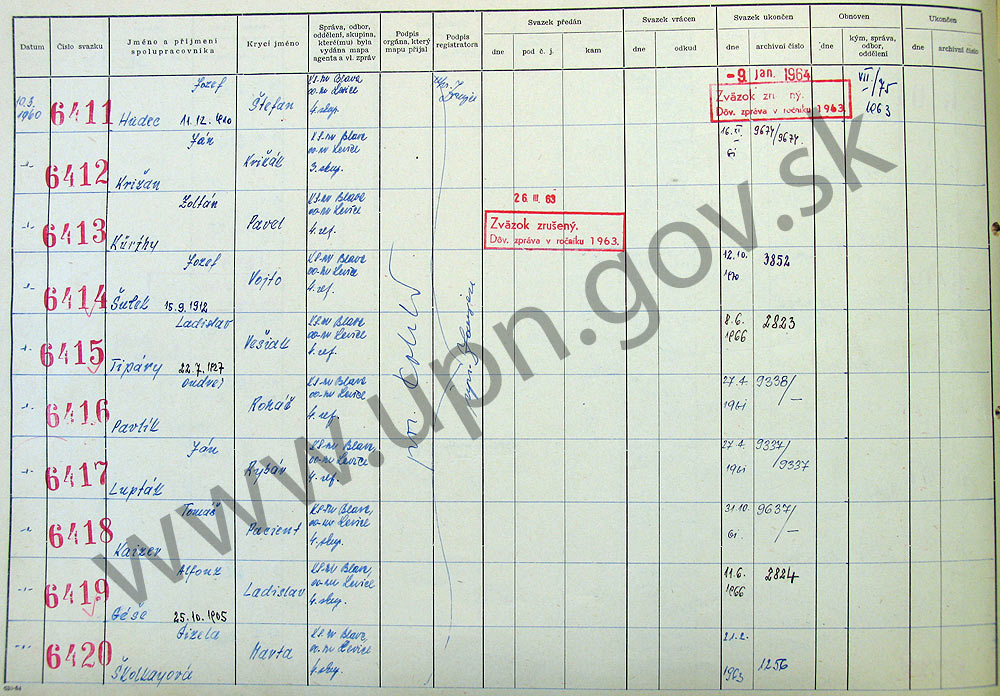 Datum
Číslo svazku
Jméno a příjmení spolupracovníka
Krycí jméno
Správa, odbor, oddělení, skupina, které(mu) byla vydána mapa agenta a vl. zpráv
Podpis orgána, který mapu přijal
Podpis registratora
Svazek předán
dne
pod č. j.
kam
Svazek vrácen
dne
odkud
Svazek ukončen
dne
archivní číslo
Obnoven
dne
kým, správa, odbor, oddělení
Ukončen
dne
archivní číslo
10.3. 1960
6411
Jozef
Hudec 11.12.1910
Štefan
KS-MV Blava
oo-MV Levice
4. skup.
- 9. jan. 1964
Zväzok zru ný.
Dôv. zpráva v ročníku 1963.
VII./75
1963
6412
Ján
Križan
Križák
KS-MV Blava
oo-MV Levice
3. skup.
16. VI. 9674/9674.
61
6413
Zoltán
Kürthy
Pavel
KS-MV Blava
oo-MV Levice
4. ref.
26 III. 63
Zväzok zrušený.
Dôv. zpráva v ročníku 1963.
6414
Jozef
Šutek 15.9.1912
Vojto
KS-MV Blava
oo-MV Levice
4. ref.
12.10. 3852
1970
6415
Ladislav
Tipáry 22.7.1927
Vešiak
KS-MV Blava
oo-MV Levice
4. ref.
8.6. 2823
1966
6416
Ondrej
Pavlík
Roháč
KS-MV Blava
oo-MV Levice
4. ref.
27.4. 9338/-
1961
6417
Ján
Lupták
Rybár
KS-MV Blava
oo-MV Levice
4. ref.
27.4. 9337/9337
1961
6418
Tomáš
Kaizer
Pacient
KS-MV Blava
oo-MV Levice
4. skup.
31.10. 9637/-
61
6419
Alfonz
Géše 25.10.1905
Ladislav
KS-MV Blava
oo-MV Levice
4. skup.
11.6. 2824
1966
6420
Gizela
Školkayová
Marta
KS-MV Blava
oo-MV Levice
4. skup.
21.2.
1963 1256
www.upn.gov.sk